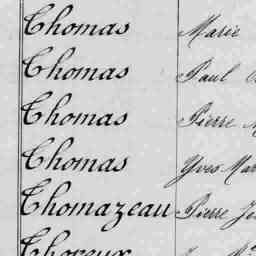 Thomas Marie
Thomas Paul
Thomas Pierre
Thomas Yves Mar
Thomazeau Pierre Je
Thoreux